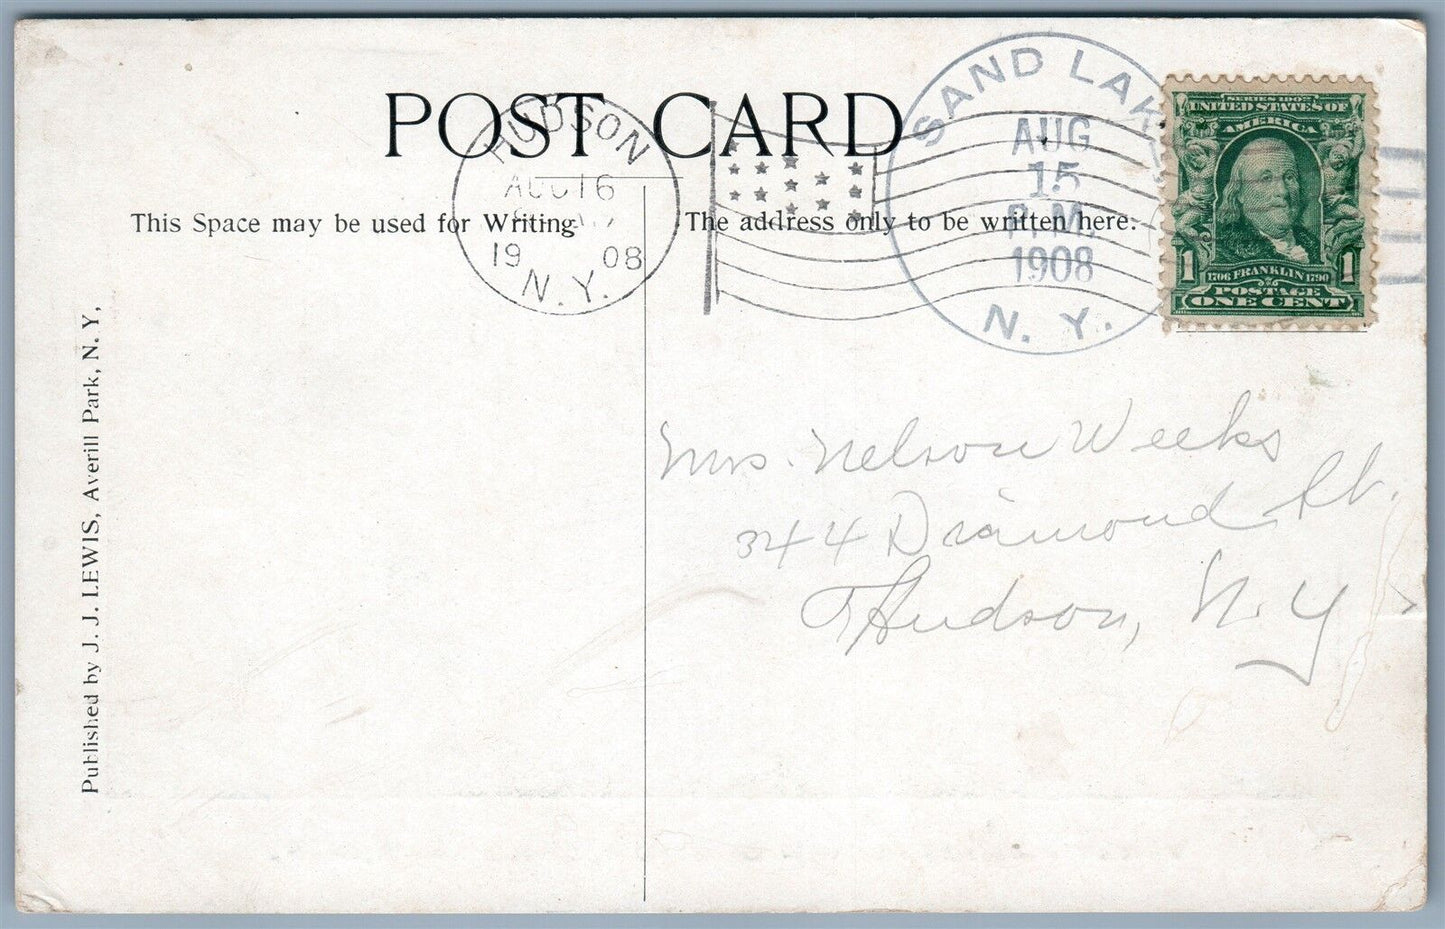 POST CARD
This Space may be used for Writing
The address only to be written here.
HUDSON
AUG 16
19 08
N.Y.
SAND LAKE
AUG
15
P.M.
1908
N. Y.
SERIES 1902
UNITED STATES OF
AMERICA
1 1706 FRANKLIN 1790 1
POSTAGE
ONE CENT
Published by J. J. LEWIS, Averill Park, N. Y,
Mrs. Nelson Weeks
344 Diamond St.
Hudson, N. Y